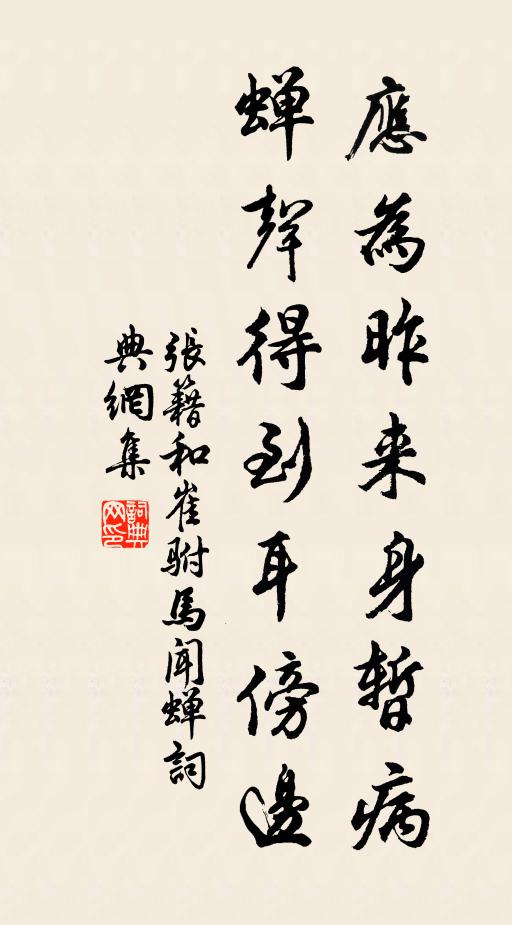 應為昨来身暫病
蟬聲得到耳傍邊
張籍和崔駙馬聞蟬詞
典網集
詞典网印